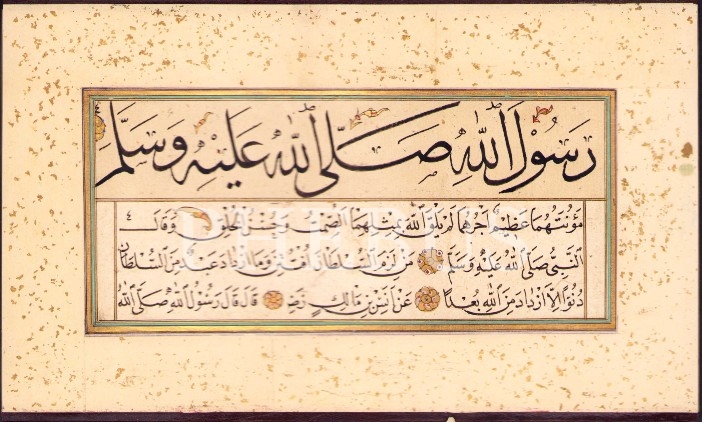 رَسُوْلُ اللّٰهِ صَلَّى اللّٰهُ عَلَيْهِ وَسَلَّمَ
مَؤُنَتُهُمَا عَظِيْمٌ اَجْرُهُمَا لَمْ يَلْقَ اللّٰهَ بِمِثْلِهِمَا الصَّمْتُ وَحُسْنُ الْخُلُقِ وَقَالَ
النَّبِيُّ صَلَّى اللّٰهُ عَلَيْهِ وَسَلَّمَ مَنْ لَزِمَ السُّلْطَانَ افْتُتِنَ وَمَا ازْدَادَ عَبْدٌ مِنَ السُّلْطَانِ
دُنُوًّا اِلَّا ازْدَادَ مِنَ اللّٰهِ بُعْدًا عَنْ اَنَسِ بْنِ مَالِكٍ رَضِ قَالَ قَالَ رَسُوْلُ اللّٰهِ صَلَّى اللّٰهُ